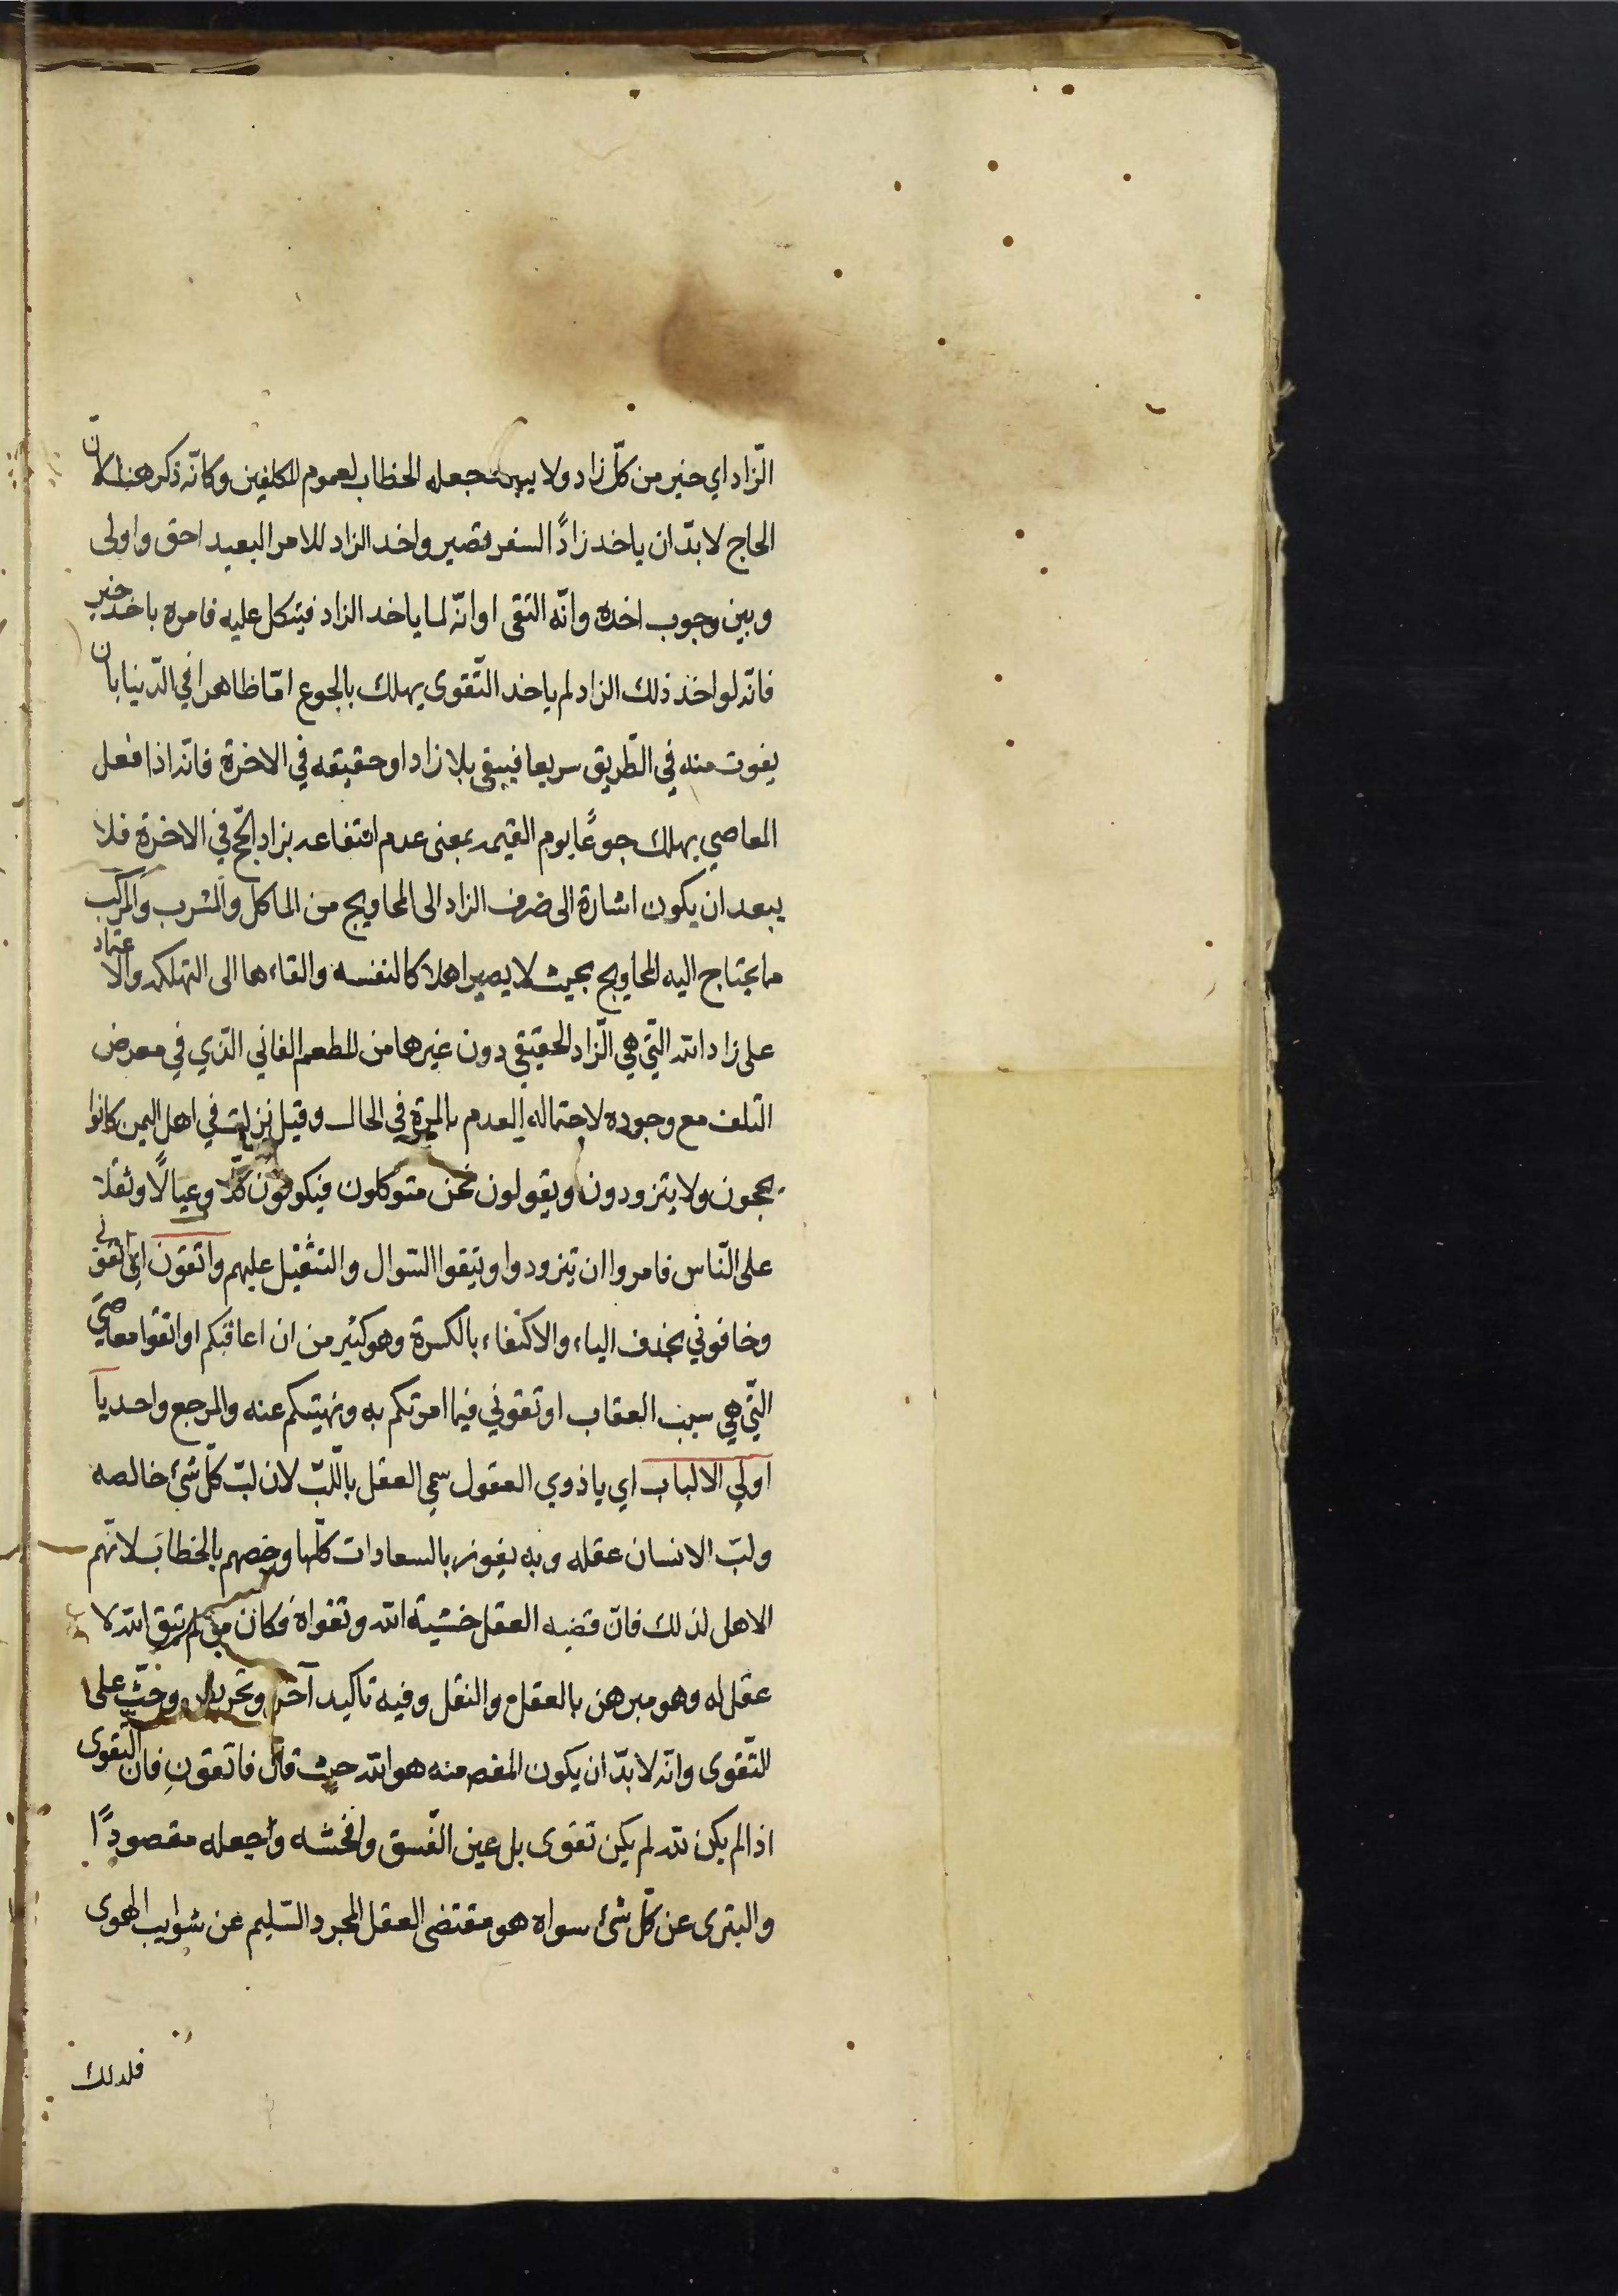 الزّاد اي خير من كلّ زاد ولا يبعد جعله الخطاب لعموم المكلفين وكانّه ذكر هنا لانّ
الحاج لا بدّ ان ياخد زادًا السفر قصير واخد الزاد للامر البعيد احق واولى
وبين وجوب اخده وانّه التقى او انّه لما ياخد الزاد فيتكل عليه فامره باخد خير
فانّه لو اخذ ذلك الزاد لم ياخد التّقوى يهلك بالجوع امّا ظاهرا في الدّنيا بان
يفوت منه في الطّريق سريعا فيبقى بلا زاد او حقيقه في الاخرة فانّه اذا فعل
المعاصي يهلك جوعًا يوم القيمه بمعنى عدم انتفاعه بزاد الحّج في الاخرة فلا
يبعد ان يكون اشارة الى صرف الزاد الى المحاويج من الماكل والمشرب والمركب
ما يحتاج اليه المحاويج بحيث لا يصير اهلاكا لنفسه والقاءها الى التهلكه والاعتماد
على زاد الله الّتي هي الزّاد الحقيقي دون غيرها من المطعم الفاني الذّي في معرض
التّلف مع وجوده لاحتماله العدم بالمرة في الحال وقيل نزلت في اهل اليمن كانوا
يحجون ولا يتزودون ويقولون نحن متوكلون فيكونون كلّا وعيالًا وثقلا
على النّاس فامروا ان يتزودوا ويتقوا السّوال والتثقيل عليهم واتقون اي اتقوني
وخافوني بحذف الياء والاكتفاء بالكسرة وهو كثير من ان اعاقبكم او اتقوا معاصيّ
الّتي هي سبب العقاب او تقوني فيما امرتكم به ونهيتكم عنه والمرجع واحد يآ
اولي الالباب اي يا ذوي العقول سمي العقل باللّبّ لان لبّ كلّ شئ خالصه
ولبّ الانسان عقله وبه يفوز بالسعادات كلّها وخصهم بالخطاب لانّهم
الاهل لذلك فانّ قضيه العقل خشية الله وتقواه فكان من لم يتق الله لا
عقل له وهو مبرهن بالعقل والنقل وفيه تاكيد آخر وتحريص وحثّ على
التّقوى وانّه لا بدّ ان يكون المقصم منه هو الله حيث قال فاتقونِ فان التقوى
اذا لم يكن لله لم يكن تقوى بل عين الفّسق وافحشه واجعله مقصودًا
والتبرى عن كلّ شئ سواه هو مقتضى العقل المجرد السّليم عن شوايب الهوى
فلدلك